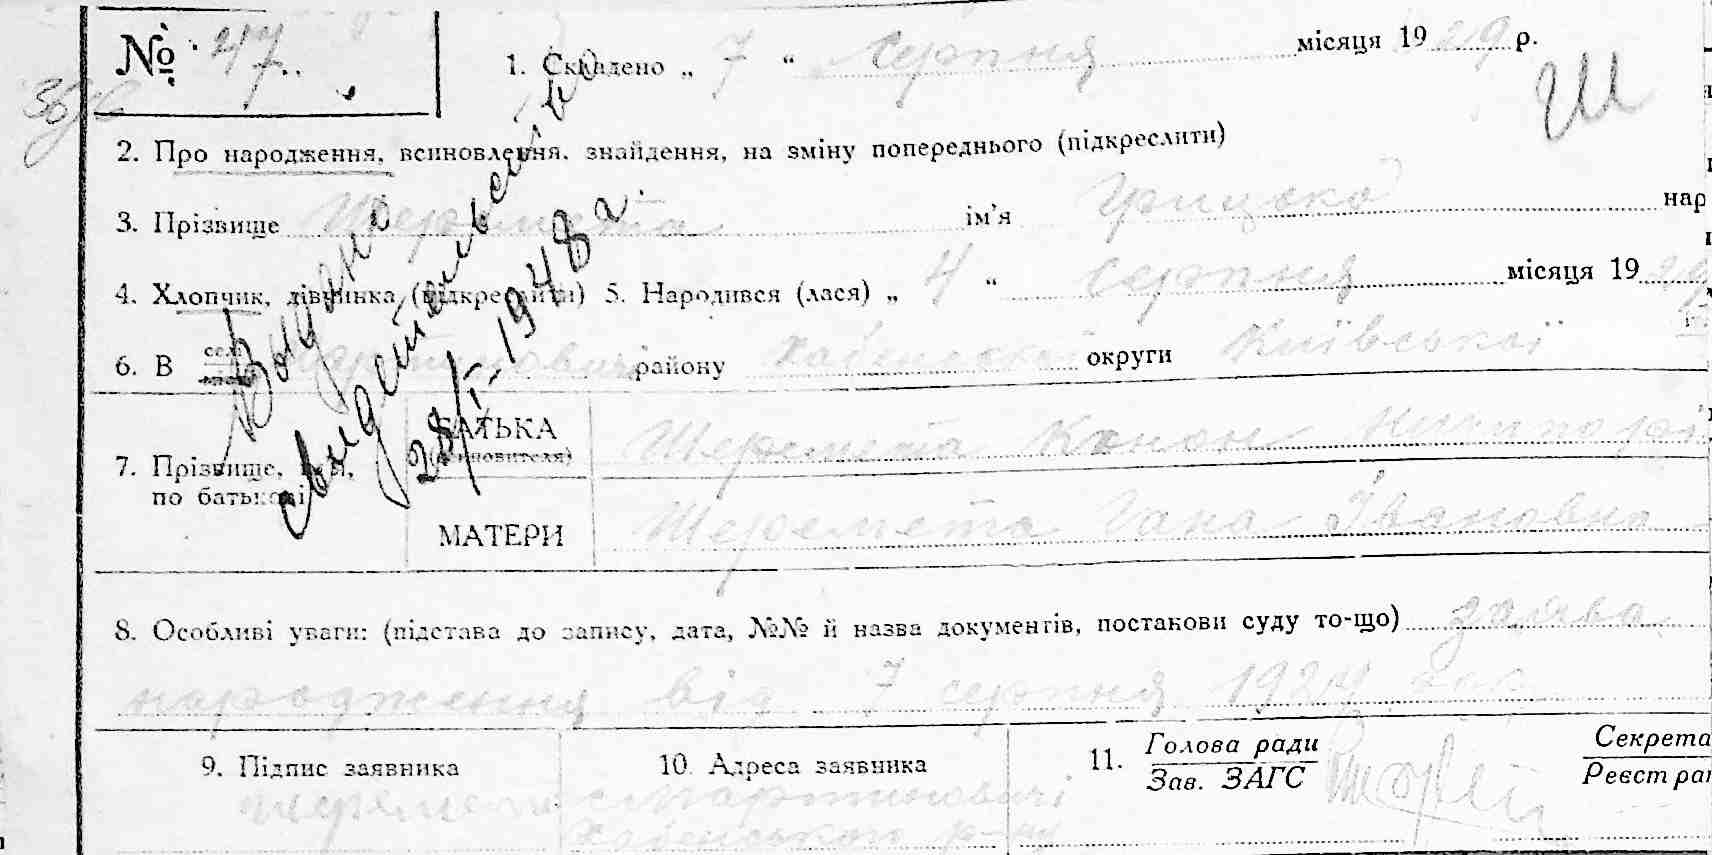 № 47. 1. Складено „ 7 “ серпня місяця 19 29 р.
Ш
2. Про народження, всиновлення, знайдення, на зміну попереднього (підкреслити)
3. Прізвище Шеремета ім’я Грицько нар
4. Хлопчик, дівчинка (підкреслити) 5. Народився (лася) „ 4 “ серпня місяця 19 29
6. В село Мартиновичі району Хабенськ округи Київської
Выдано
свидетельство
28/I-1948 г.
7. Прізвище, ім’я, по батькові
БАТЬКА (всиновителя) Шеремета Конон
МАТЕРИ Шеремета Гана Івановна
8. Особливі уваги: (підстава до запису, дата, №№ й назва документів, постакови суду то-що) заява
народження від 7 серпня 1929
9. Підпис заявника 10. Адреса заявника 11. Голова ради Секрета
Зав. ЗАГС Реєстра
Шеремета с Мартиновичі
Хабенського р-ну